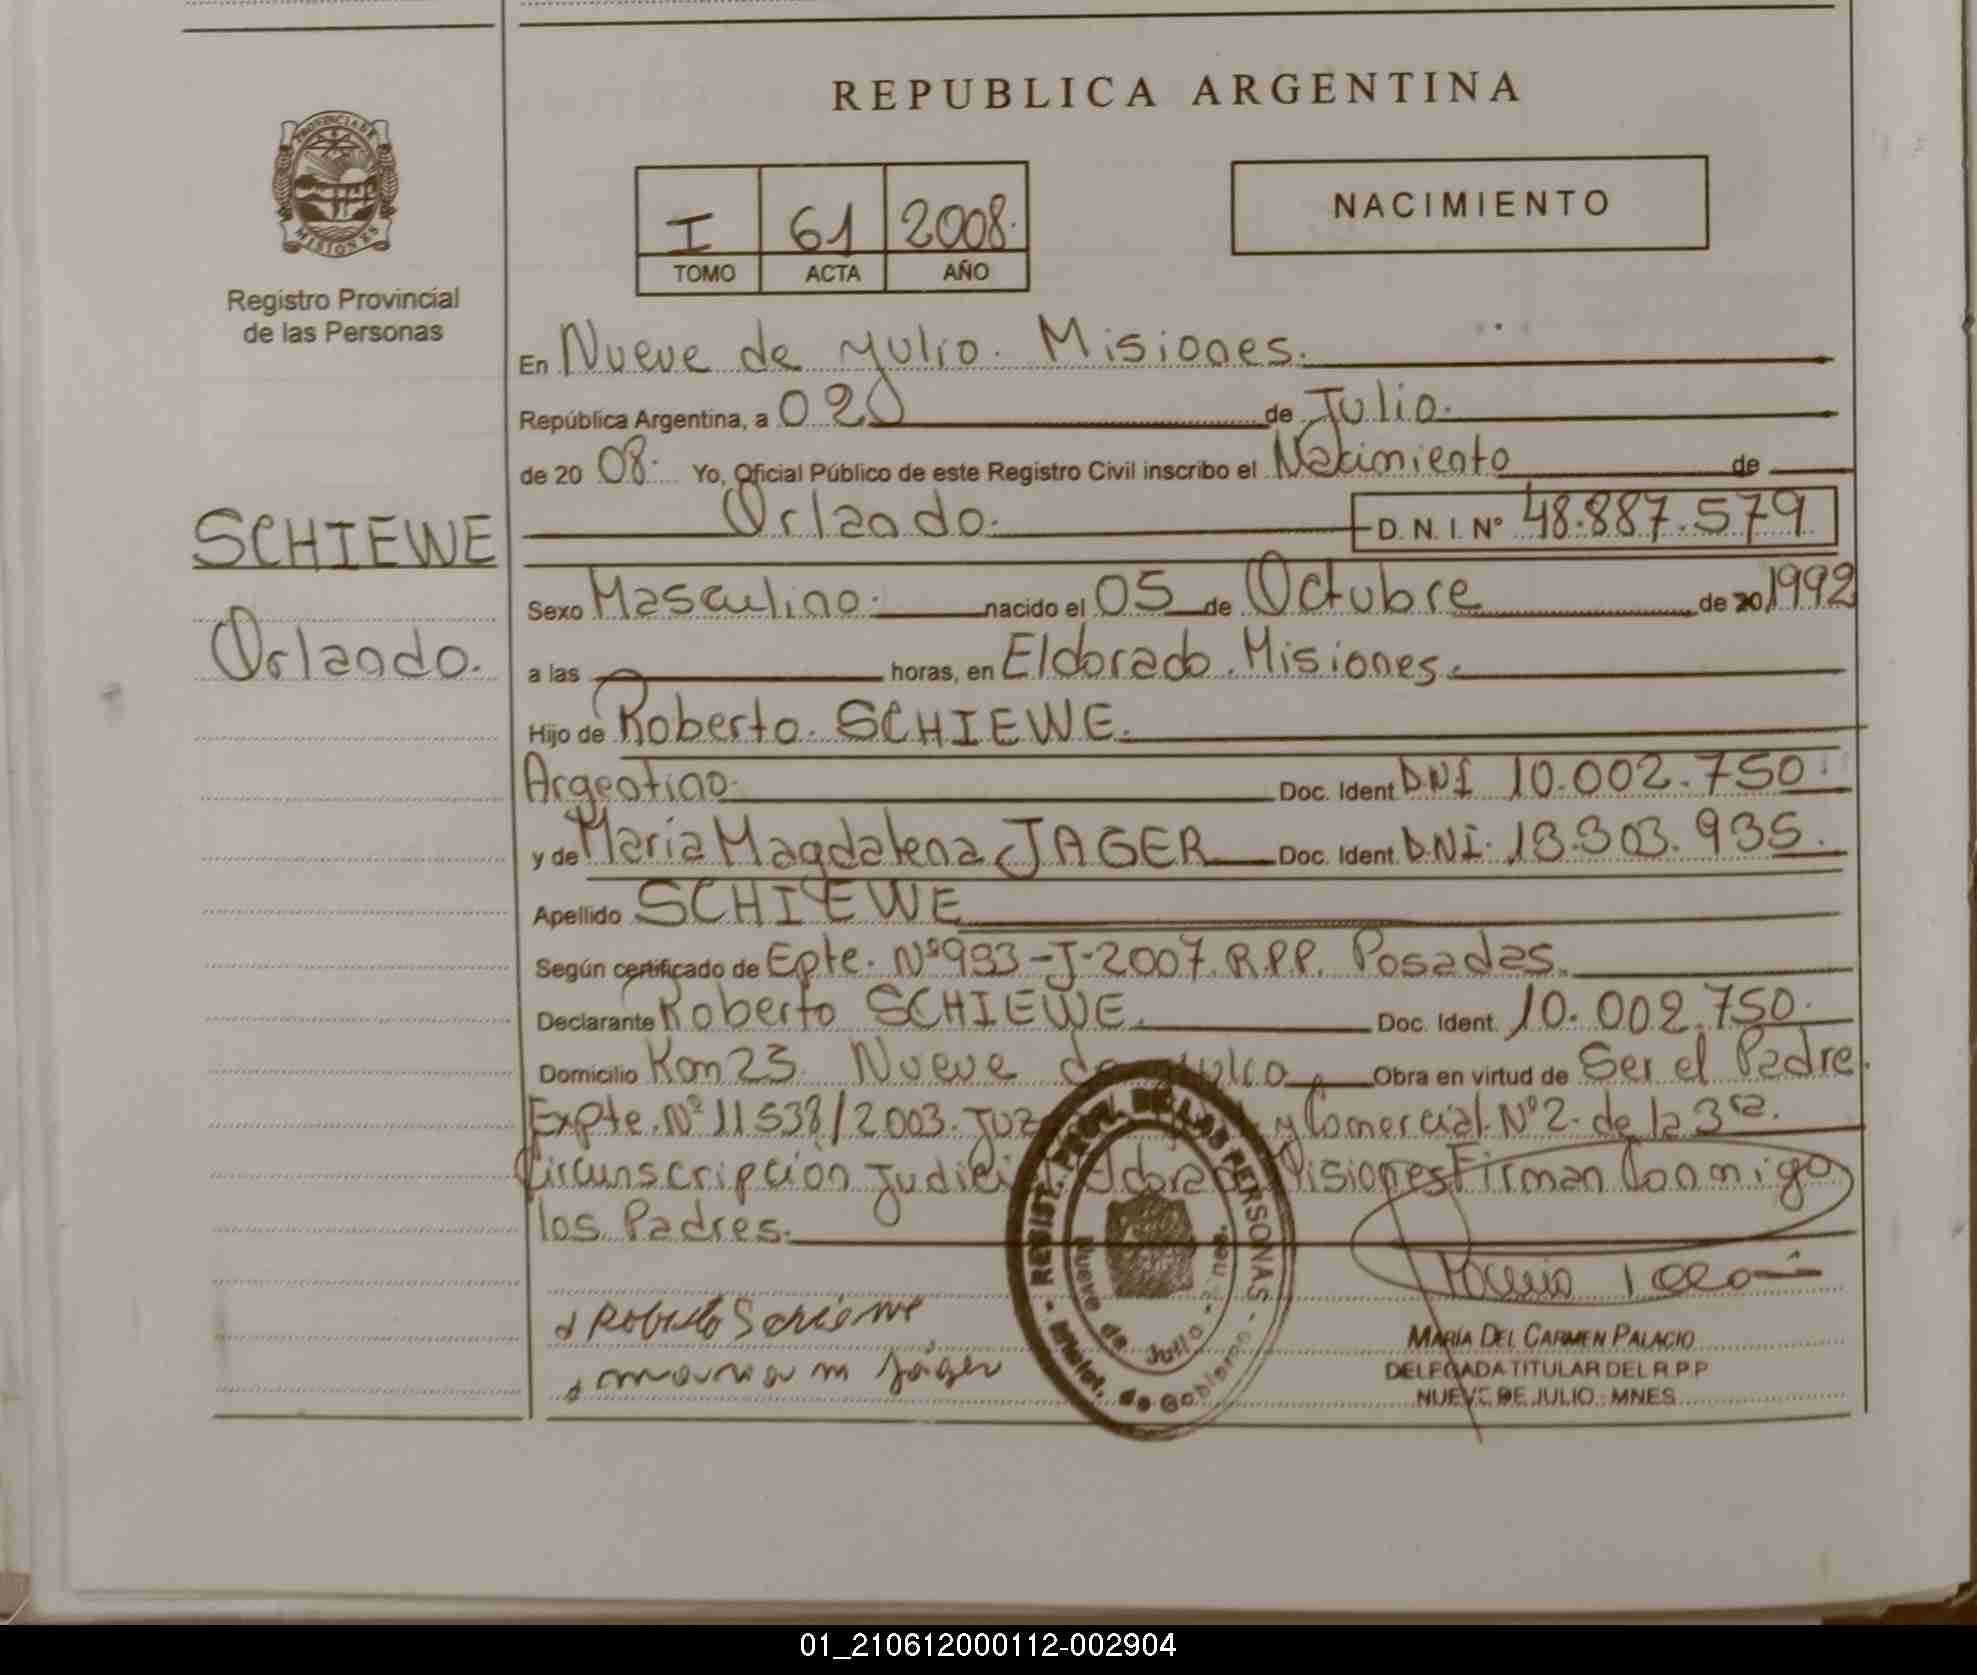 REPUBLICA ARGENTINA
PROVINCIA DE
MISIONES
Registro Provincial
de las Personas
I 61 2008.
TOMO ACTA AÑO
NACIMIENTO
En Nueve de yulio. Misiones.
República Argentina, a 02 de Julio.
de 20 08. Yo, Oficial Público de este Registro Civil inscribo el Nacimiento de
Orlando. D. N. I. Nº 48.887.579
SCHIEWE
Orlando.
Sexo Masculino. nacido el 05 de Octubre de 20 1992
a las horas, en Eldorado. Misiones.
Hijo de Roberto. SCHIEWE.
Argentino. Doc. Ident. DNI 10.002.750.
y de Maria Magdalena JAGER Doc. Ident. DNI. 13.303.935.
Apellido SCHIEWE
Según certificado de Epte. Nº 933-J-2007. R.P.P. Posadas.
Declarante Roberto SCHIEWE. Doc. Ident. 10.002.750.
Domicilio Km 23. Nueve de yulio Obra en virtud de Ser el Padre.
Expte. Nº 11538/2003. Juz y Comercial. Nº 2. de la 3ra.
Circunscripción Judicial Eldorado Misiones Firman Conmigo
los Padres.
REGIST. PROV. DE LAS PERSONAS
Nueve de Julio - Mnes.
Minist. de Gobierno
Roberto Schiewe
maria m Jäger
MARÍA DEL CARMEN PALACIO
DELEGADA TITULAR DEL R.P.P
NUEVE DE JULIO - MNES
01_210612000112-002904